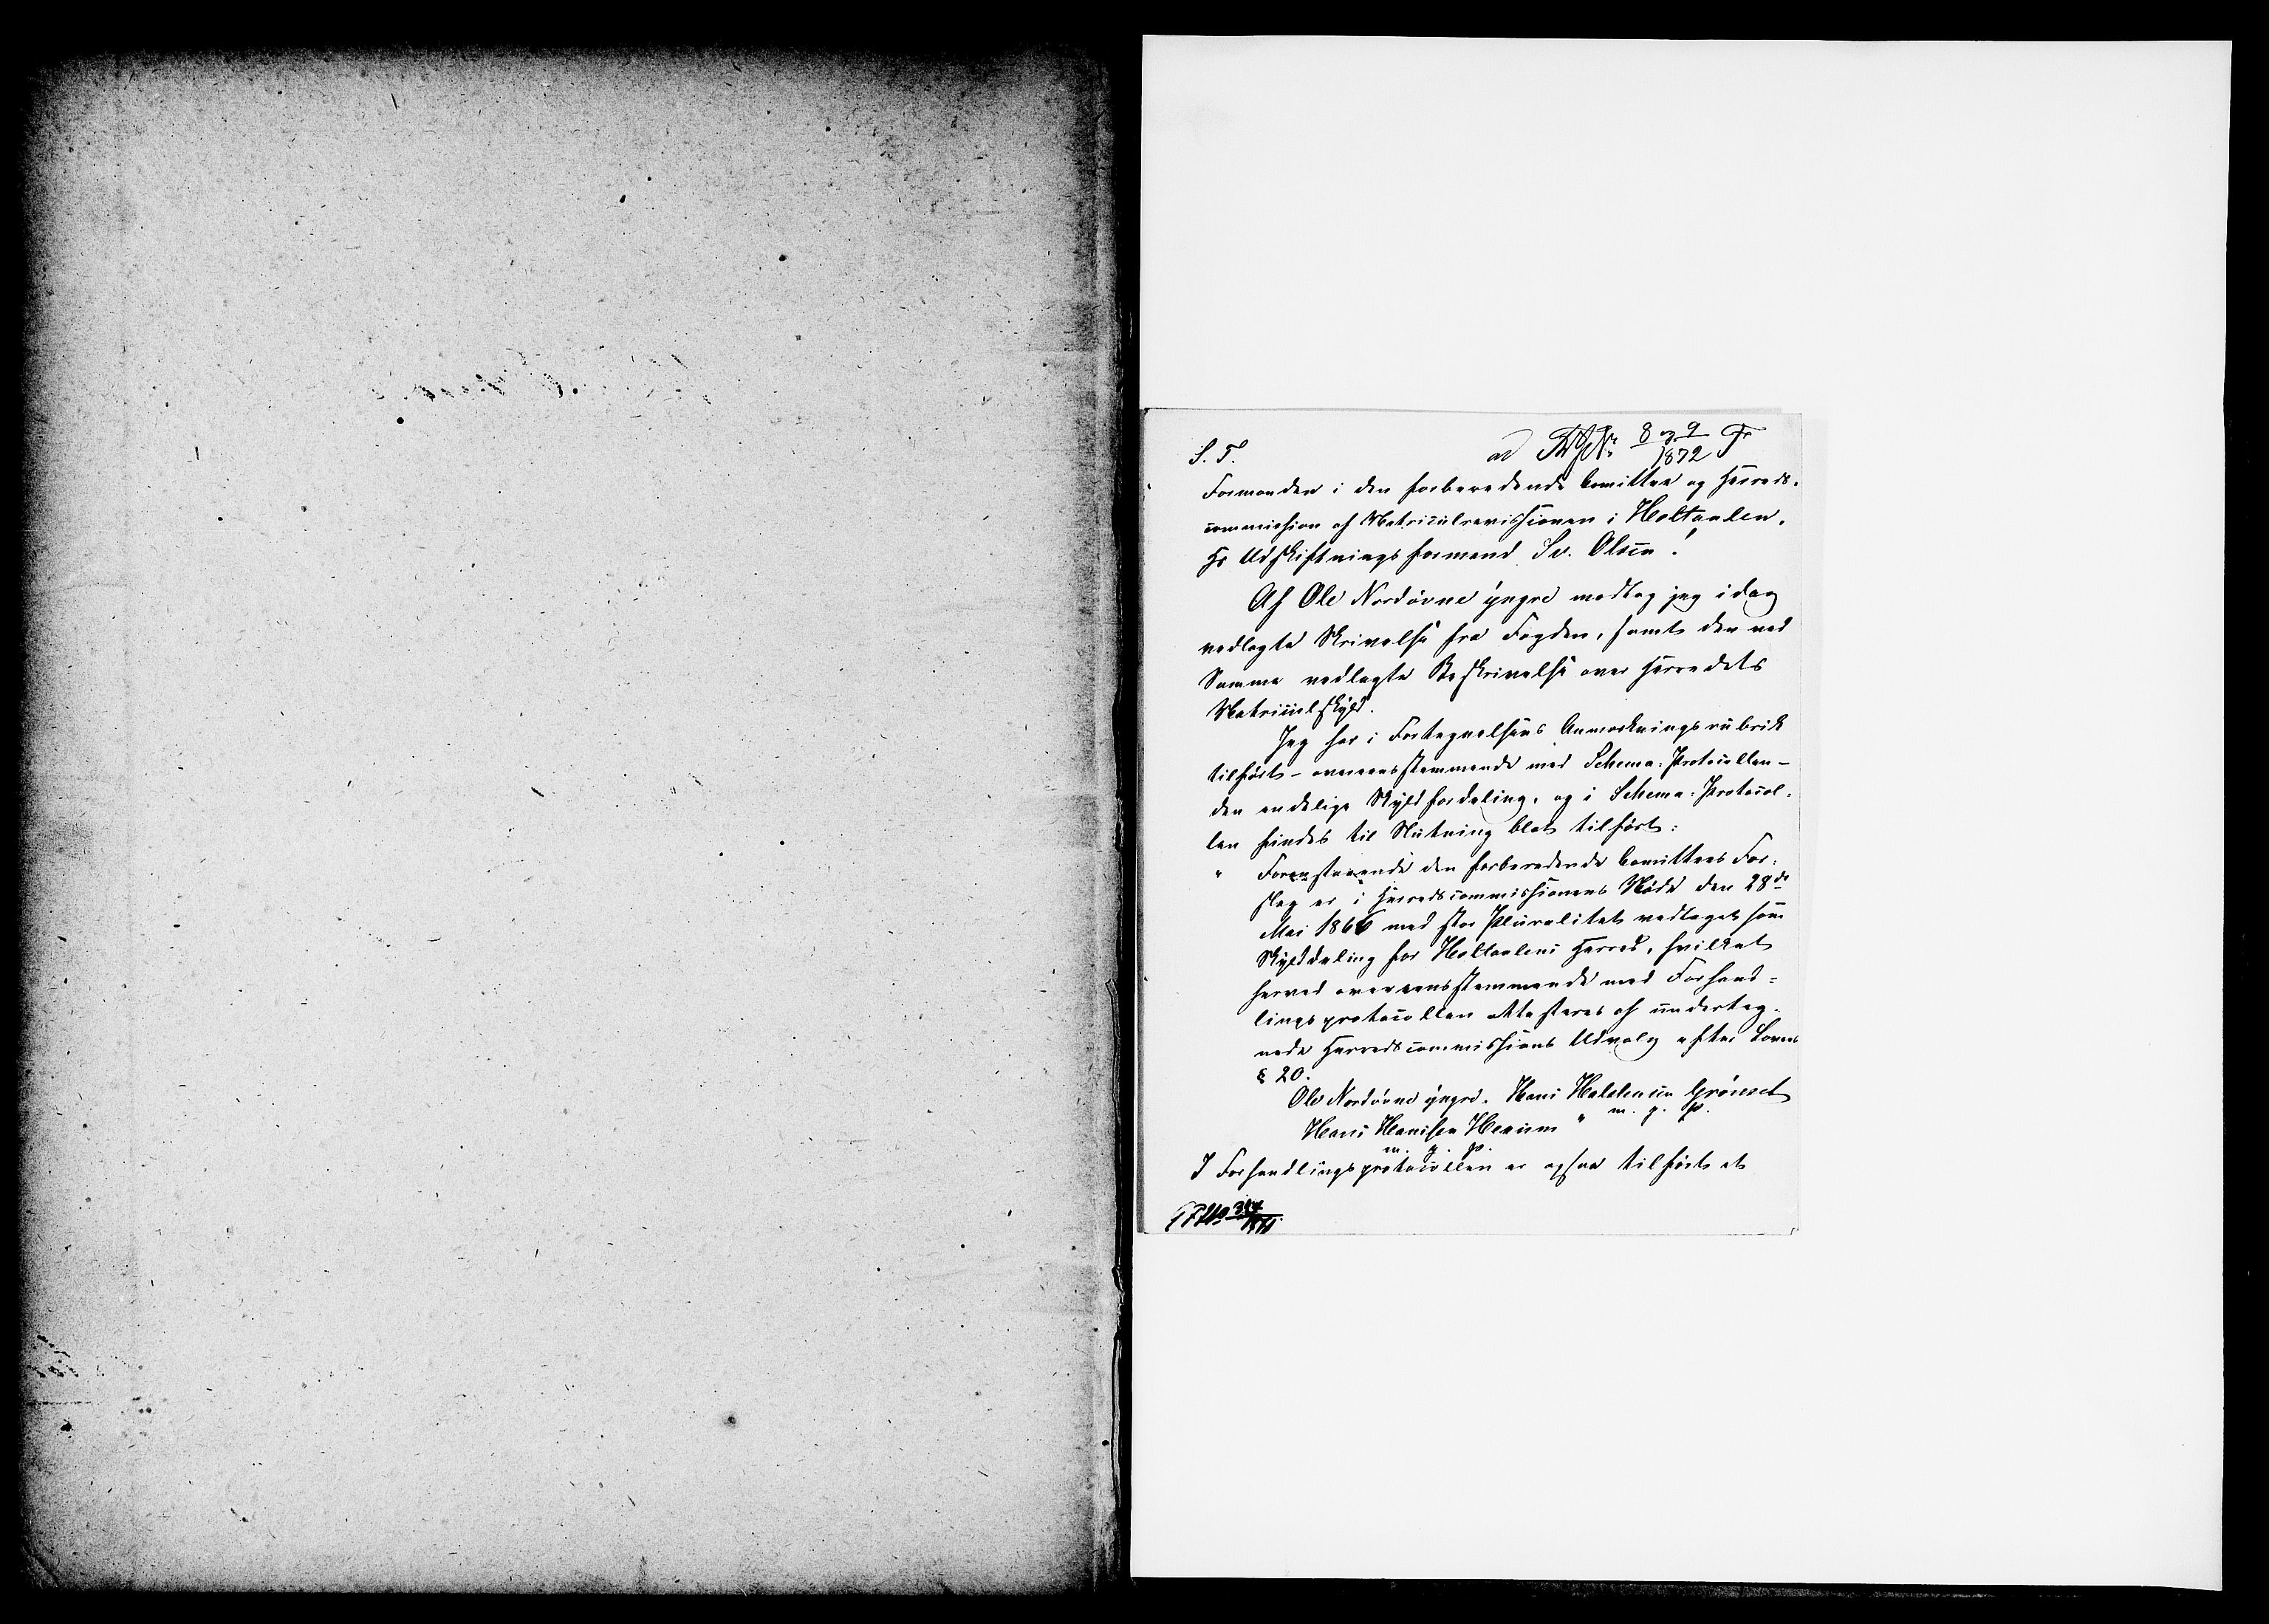 S. T.
ad No 8 og 9 1872
Formanden i den forberedende Comittee og Herreds-
commission af Matriculrevissionen i Holtaalen,
Hr Udskiftningsformand Sv. Olsen!
Af Ole Nordövne yngre modtog jeg idag
vedlagte Skrivelse fra Fogden, samt den ved
Samme vedlagte Beskrivelse over Herredets
Matriculskyld.
Jeg har i Fortegnelsens Anmærkningsrubrik
tilført - overensstemmende med Schema-Protocollen -
den endelige Skyldfordeling, og i Schema-Protocol-
len findes til Slutning blot tilført:
" Forenstaaende den forberedende Comittees For-
slag er i Herredscommissionens Møde den 28de
Mai 1866 med stor Pluralitet vedtaget som
Skylddeling for Holtaalens Herred, hvilket
herved overensstemmende med Forhand-
lingsprotocollen attesteres af underteg-
nede Herredscommissions Udvalg efter Lovens
§ 20.
Ole Nordövne yngre. Hans Halstensen Grönset
m. g. p.
Hans Hansen Hexum "
m. g. p.
I Forhandlingsprotocollen er ogsaa tilført et